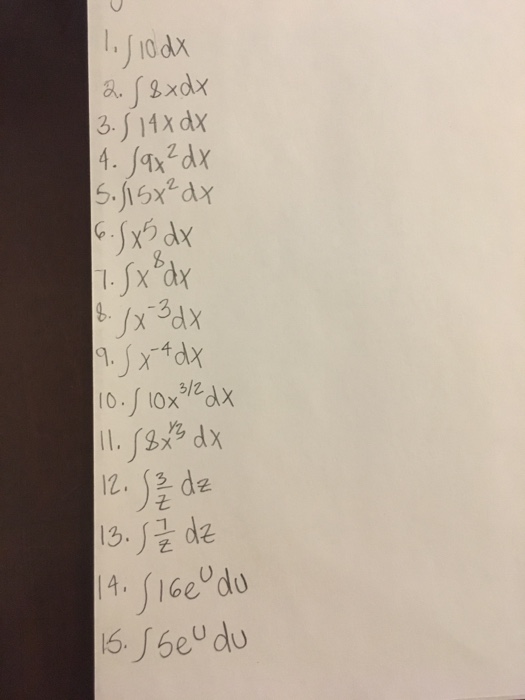 1. ∫10dx
2. ∫8xdx
3. ∫14xdx
4. ∫9x²dx
5. ∫15x²dx
6. ∫x⁵dx
7. ∫x⁸dx
8. ∫x⁻³dx
9. ∫x⁻⁴dx
10. ∫10x³/²dx
11. ∫8x¹/³dx
12. ∫3/z dz
13. ∫7/z dz
14. ∫16eᵁdu
15. ∫5eᵁdu